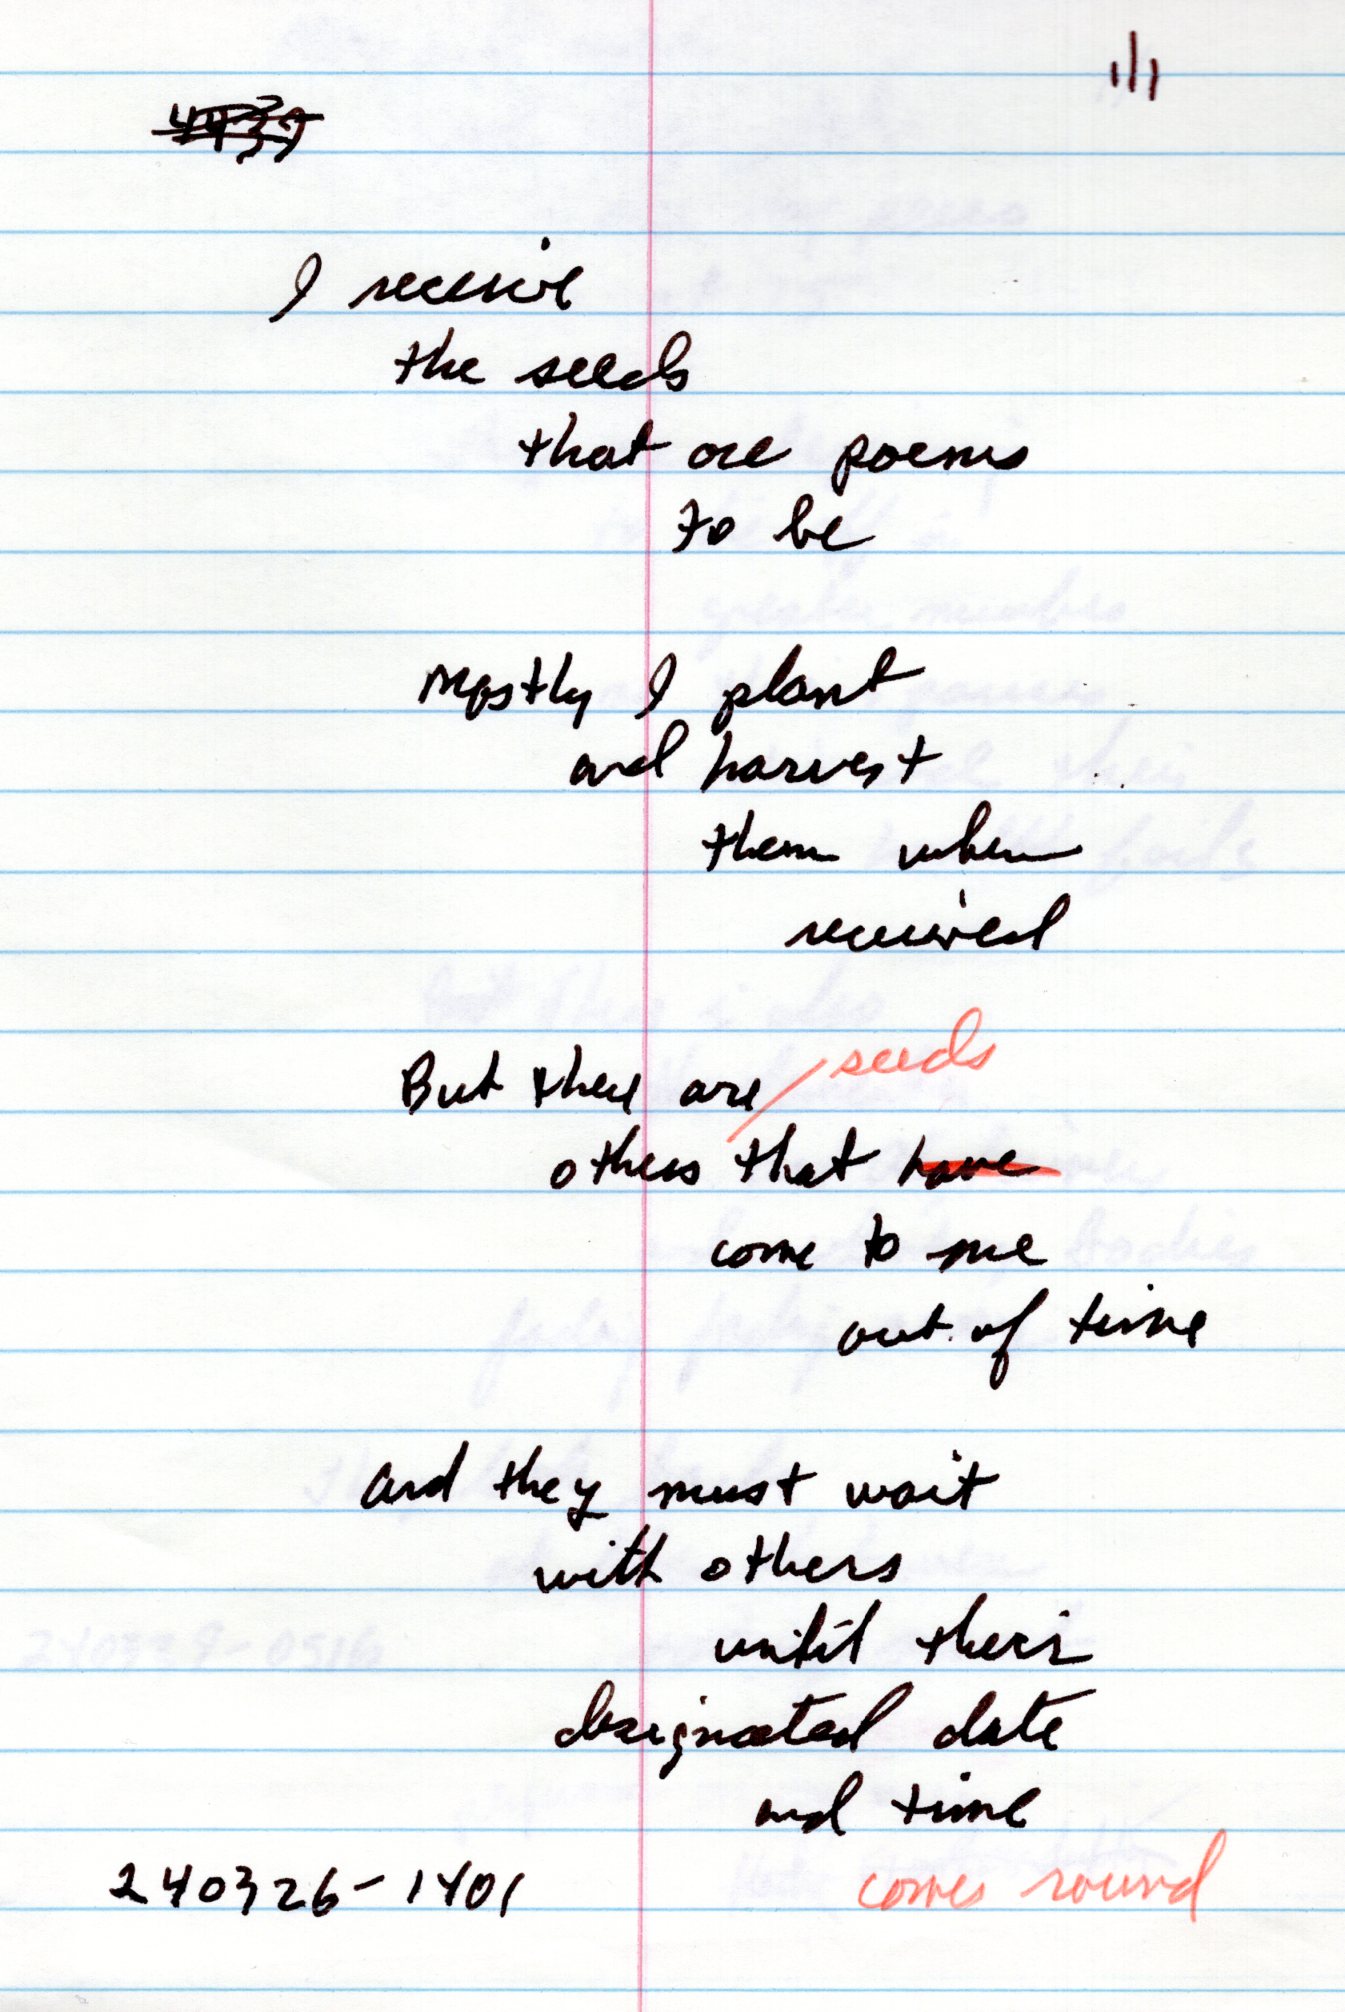 I receive
the seeds
that are poems
to be
Mostly I plant
and harvest
them when
received
But there are seeds
others that have
come to me
out of time
and they must wait
with others
until their
designated date
and time
comes round
240326-1401